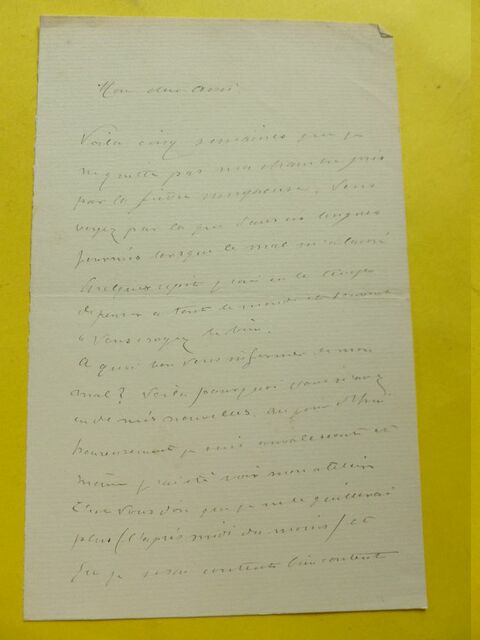 Mon cher ami
Voilà cinq semaines que je
ne quitte pas ma chambre pris
par la fièvre muqueuse. Vous
voyez par là que dans ces longues
journées lorsque le mal m'a laissé
quelques répits j'ai eu le temps
de penser à tout le monde et souvent
à vous croyez le bien.
A quoi bon vous informer de mon
mal? Voilà pourquoi vous n'avez
eu de mes nouvelles. Aujourd'hui
heureusement je suis convalescent et
même j'ai été voir mon atelier
C'est vous dire que je ne le quitterai
plus (l'après midi du moins) et
que je serai content bien content